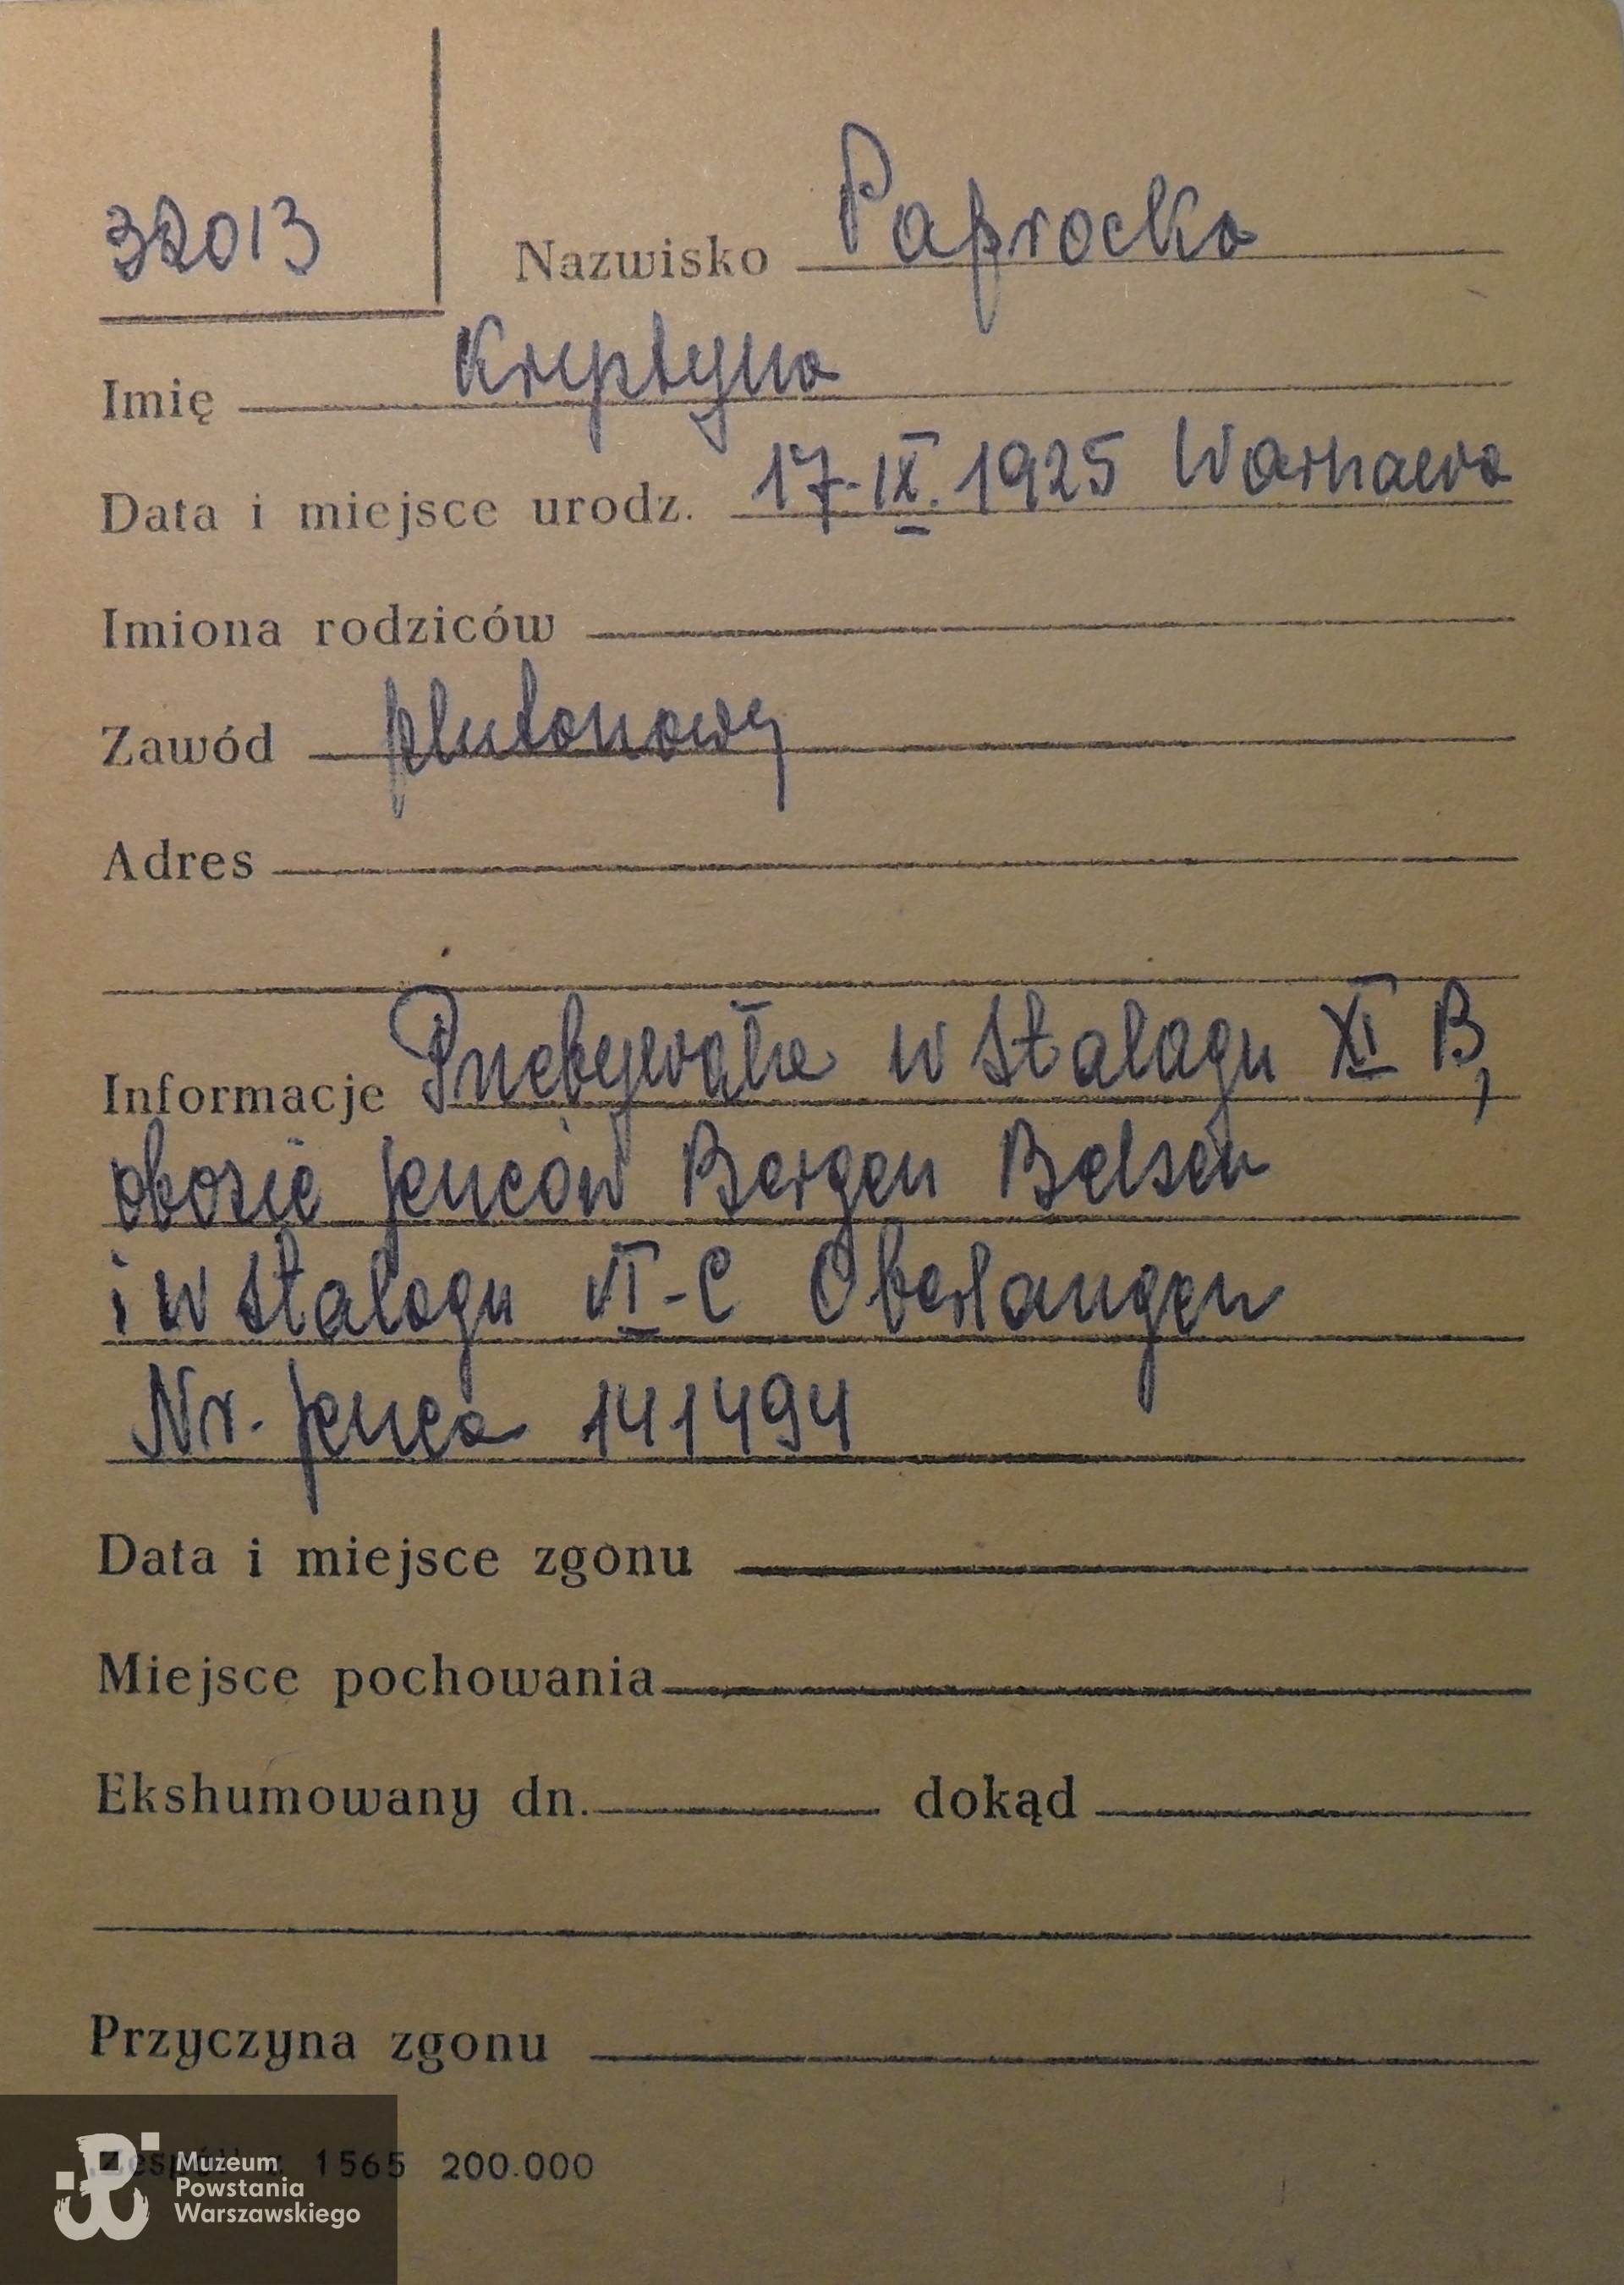 32013
Nazwisko Paprocka
Imię Krystyna
Data i miejsce urodz. 17-IX.1925 Warszawa
Imiona rodziców
Zawód plutonowy
Adres
Informacje Przebywała w Stalagu XI B,
obozie jeńców Bergen Belsen
i w Stalagu VI-C Oberlangen
Nr. jeńca 141494
Data i miejsce zgonu
Miejsce pochowania
Ekshumowany dn. dokąd
Przyczyna zgonu
1565 200.000
Muzeum
Powstania
Warszawskiego